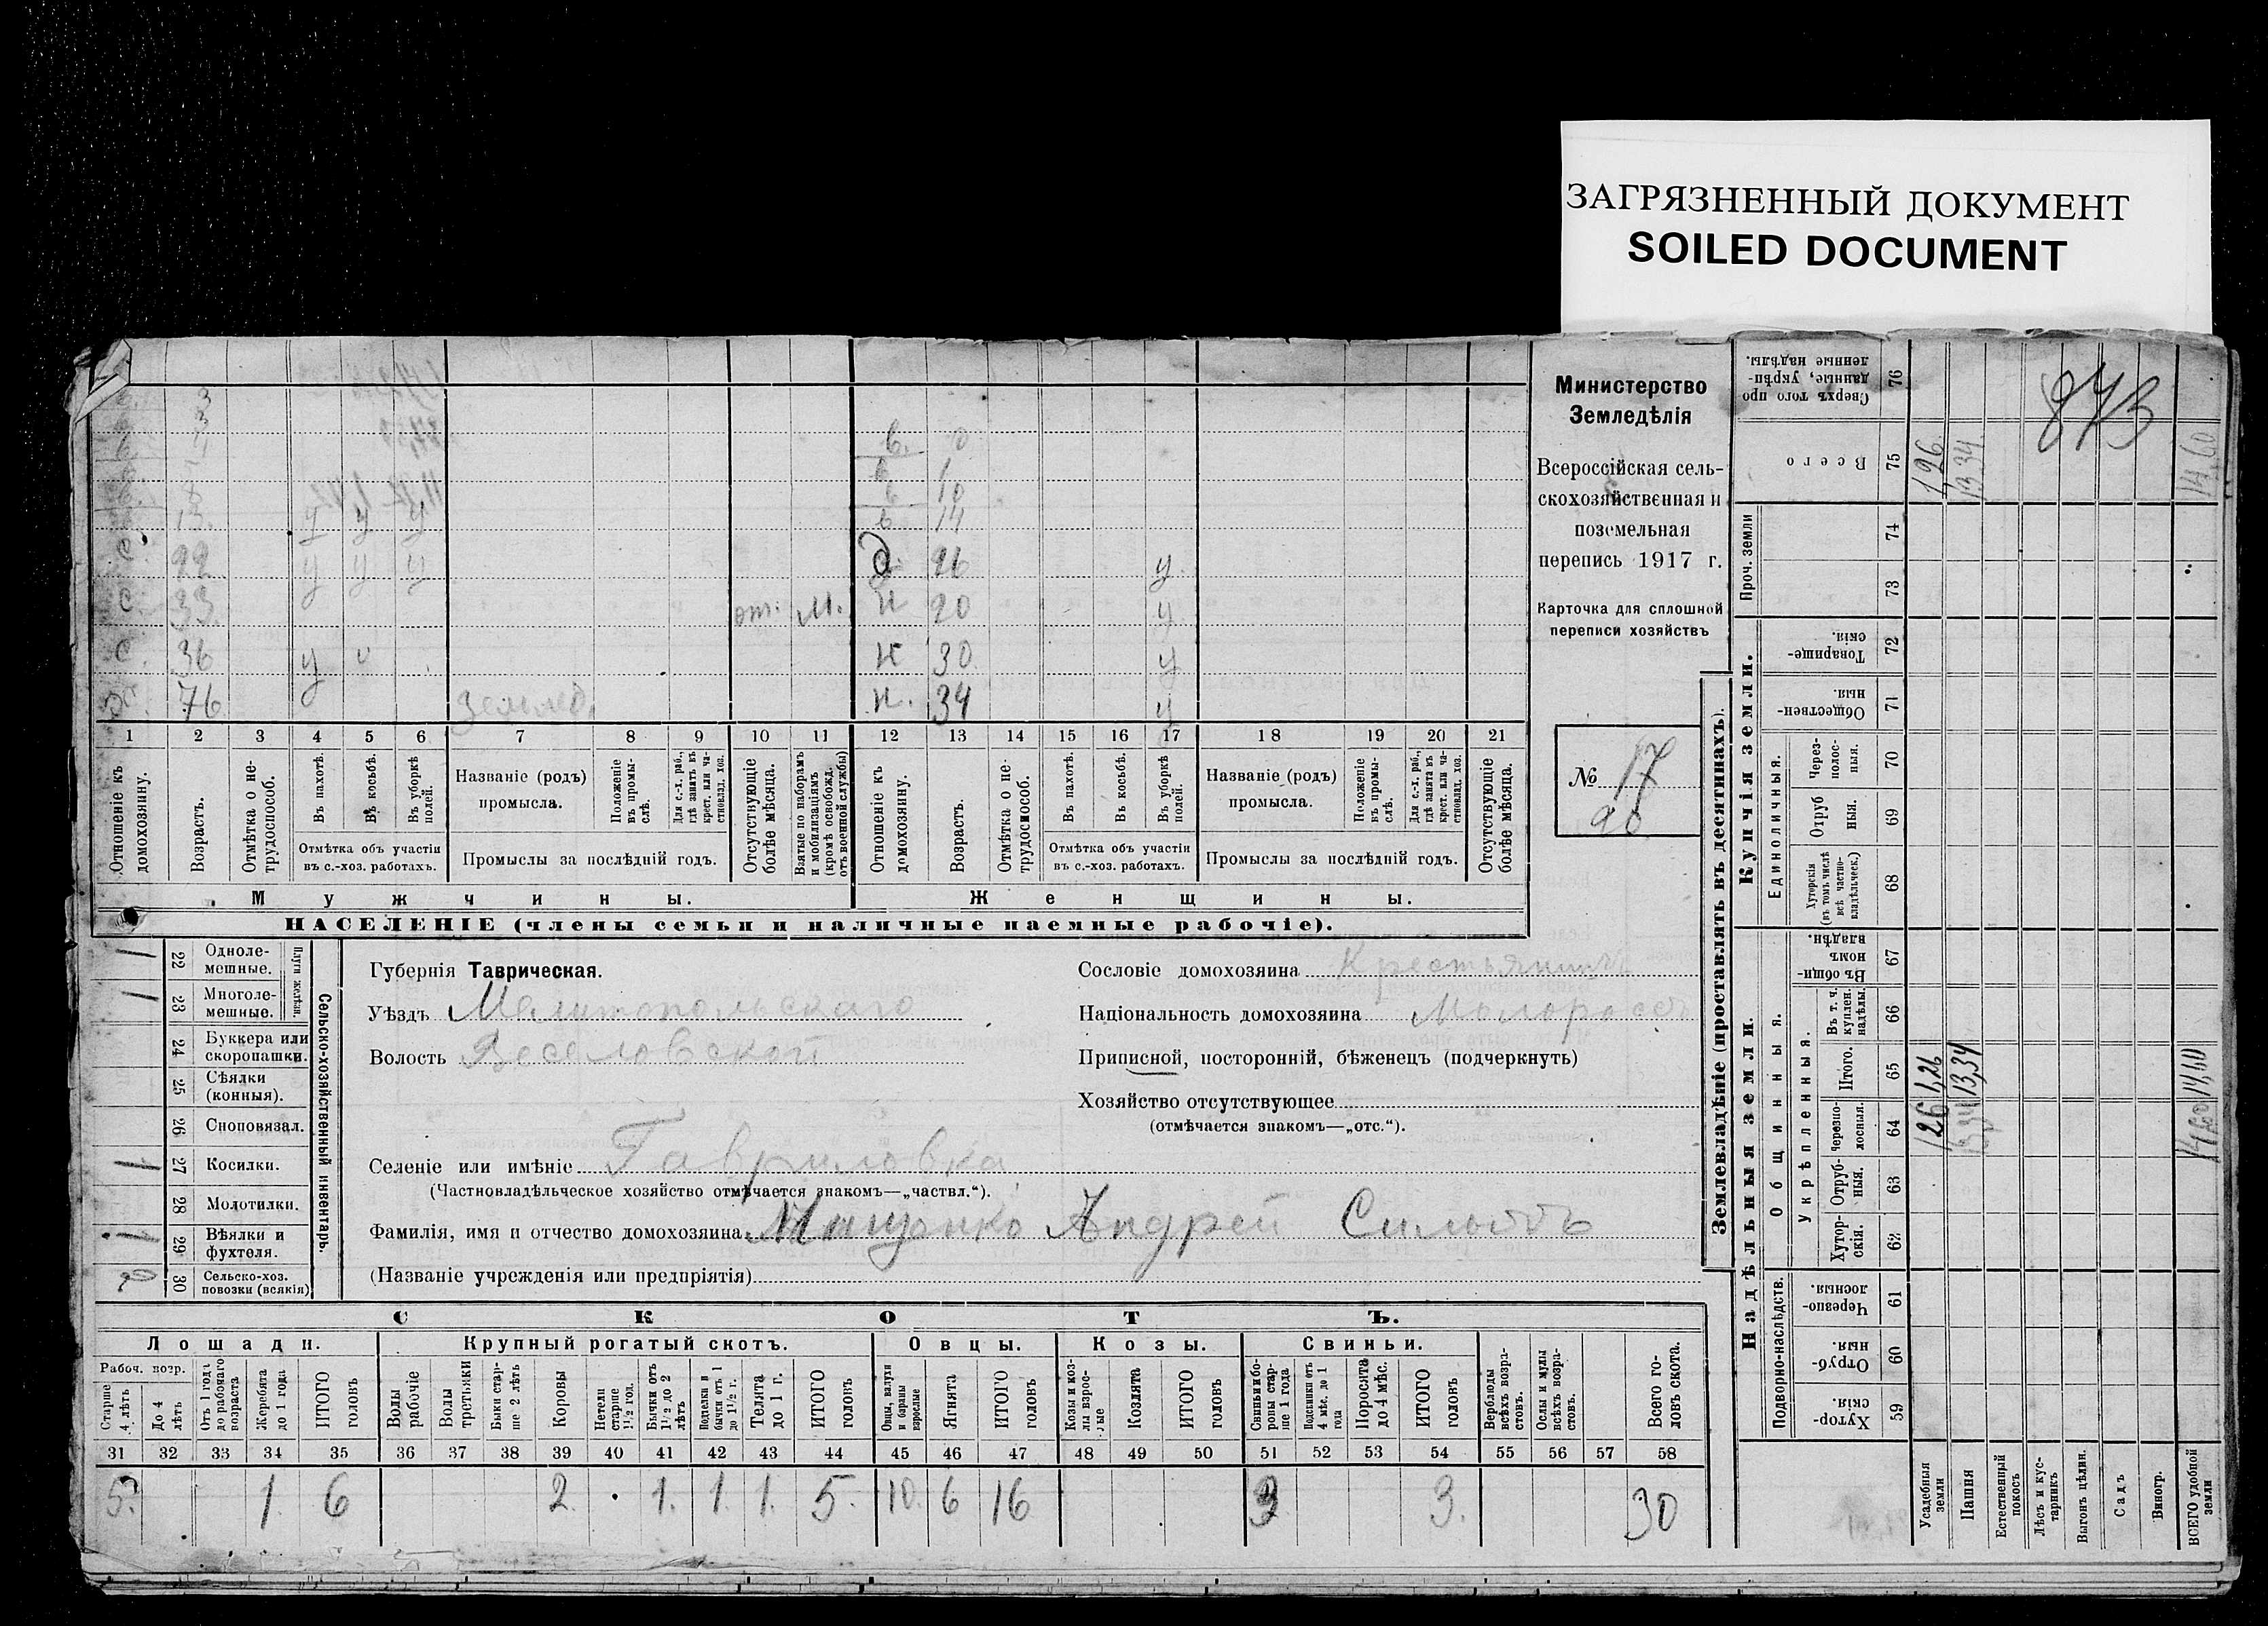 ЗАГРЯЗНЕННЫЙ ДОКУМЕНТ
SOILED DOCUMENT
Министерство
Земледѣлія
Всероссійская сель-
скохозяйственная и
поземельная
перепись 1917 г.
Карточка для сплошной
переписи хозяйствъ
№ 17
90
в. 0
в 1
8 в 10
13. у у у в 14
с. 22 у у у д. 26 у.
с. 33. от. м. н 20 у
с. 36 у н 30. у
76 землед. н. 34 у
1 2 3 4 5 6 7 8 9 10 11 12 13 14 15 16 17 18 19 20 21
Отношеніе къ домохозяину.
Возрастъ.
Отмѣтка о не-трудоспособ.
Въ пахотѣ.
Въ косьбѣ.
Въ уборкѣ полей.
Отмѣтка объ участіи
въ с.-хоз. работахъ.
Названіе (родъ)
промысла.
Положеніе въ промы-слѣ.
Для с.-х. раб., гдѣ занятъ въ крест. или ча-стновлад. хоз.
Промыслы за послѣдній годъ.
Отсутствующіе болѣе мѣсяца.
Взятые по наборамъ и мобилизаціямъ (кромѣ освобожд. отъ военной службы)
Отношеніе къ домохозяину.
Возрастъ.
Отмѣтка о не-трудоспособ.
Въ пахотѣ.
Въ косьбѣ.
Въ уборкѣ полей.
Отмѣтка объ участіи
въ с.-хоз. работахъ.
Названіе (родъ)
промысла.
Положеніе въ промы-слѣ.
Для с.-х. раб., гдѣ занята въ крест. или ча-стновлад. хоз.
Промыслы за послѣдній годъ.
Отсутствующіе болѣе мѣсяца.
Мужчины. Женщины.
НАСЕЛЕНІЕ (члены семьи и наличные наемные рабочіе).
Сельско-хозяйственный инвентарь.
Плуги желѣзн.
1 22 Одноле-мешные.
1 23 Многоле-мешные.
24 Буккера или скоропашки.
25 Сѣялки (конныя).
26 Сноповязал.
1 27 Косилки.
28 Молотилки.
1 29 Вѣялки и фухтеля.
2 30 Сельско-хоз. повозки (всякія)
Губернія Таврическая.
Уѣздъ Мелитопольскаго
Волость Веселовской
Селеніе или имѣніе Гавриловка
(Частновладѣльческое хозяйство отмѣчается знакомъ—„частвл.“).
Фамилія, имя и отчество домохозяина Мищенко Андрей Сильвъ
(Названіе учрежденія или предпріятія)
Сословіе домохозяина Крестьянинъ
Національность домохозяина Малороссъ
Приписной, посторонній, бѣженецъ (подчеркнуть)
Хозяйство отсутствующее
(отмѣчается знакомъ—„отс.“).
СКОТЪ.
Лошади. Крупный рогатый скотъ. Овцы. Козы. Свиньи.
Рабоч. возр.
Старше 4 лѣтъ
До 4 лѣтъ
Отъ 1 года до рабочаго возраста
Жеребята до 1 года
ИТОГО головъ
Волы рабочіе
Волы третьяки
Быки стар-ше 2 лѣтъ
Коровы
Нетели старше 1½ год.
Бычки отъ 1½ до 2 лѣтъ
Подтелки и бычки отъ 1 до 1½ г.
Телята до 1 г.
ИТОГО головъ
Овцы, валухи и бараны взрослые
Ягнята
ИТОГО головъ
Козы и коз-лы взрос-лые
Козлята
ИТОГО головъ
Свиньи и бо-ровы стар-ше 1 года
Подсвинки отъ 4 мѣс. до 1 года
Поросята до 4 мѣс.
ИТОГО головъ
Верблюды всѣхъ возра-стовъ.
Ослы и мулы всѣхъ возра-стовъ.
Всего го-ловъ скота.
31 32 33 34 35 36 37 38 39 40 41 42 43 44 45 46 47 48 49 50 51 52 53 54 55 56 57 58
5. 1 6 2 1. 1 1. 5. 10. 6 16 3 3. 30
Землевладѣніе (проставлять въ десятинахъ).
Купчія земли.
Надѣльныя земли.
Сверхъ того про данные, укрѣп-ленные надѣлы. 76
Всего 75 1,26 13,34 14,60
873
Проч. земли 74 73
Товарище-скія. 72
Обществен-ныя. 71
Единоличныя.
Через-полос-ныя. 70
Отруб ныя. 69
Хуторскія (въ томъ числѣ всѣ частно-владѣльческ.) 68
Общинныя.
Въ общи-номъ владѣн. 67
Укрѣпленныя.
Въ т. ч. куплен. надѣлы. 66
Итого. 65 1,26 13,34 14,60
Черезпо-лосныя. 64 1,26 13,34 14,60
Отруб-ныя. 63
Хутор-скія. 62
Подворно-наслѣдств.
Черезпо-лосныя. 61
Отруб-ныя. 60
Хутор-скія. 59
Усадебныя земли
Пашня
Естественный покосъ
Лѣсъ и кус-тарникъ
Выгонъ цѣлин.
Садъ
Виногр.
ВСЕГО удобной земли